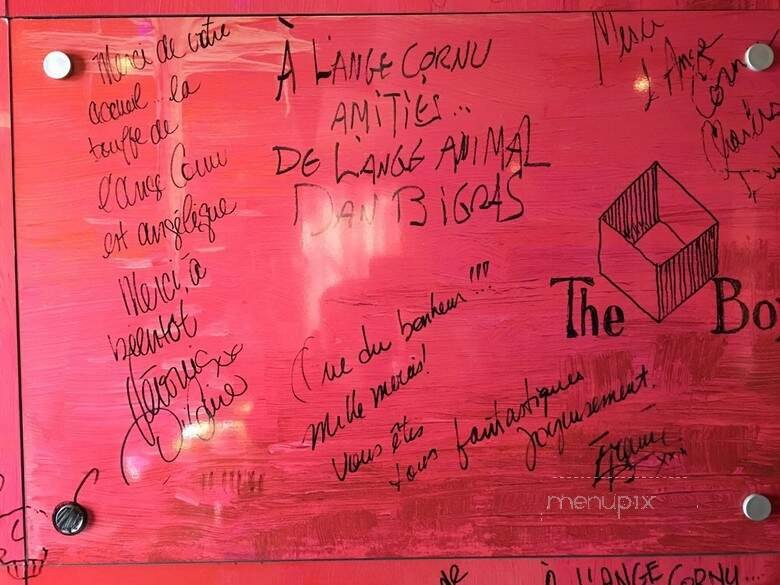 Merci de votre
accueil... la
touffe de
l'ange Cornu
est angélique
Merci, à
bientôt
À L'ANGE CORNU
AMITIÉS...
DE L'ANGE ANIMAL
DAN BIGRAS
Merci
L'Ange
Corn
Charles
The Bo
Que du bonheur!!!
Mille mercis!
Vous êtes
tous fantastiques
joyeusement.
menupix
À L'ANGE CORNU...